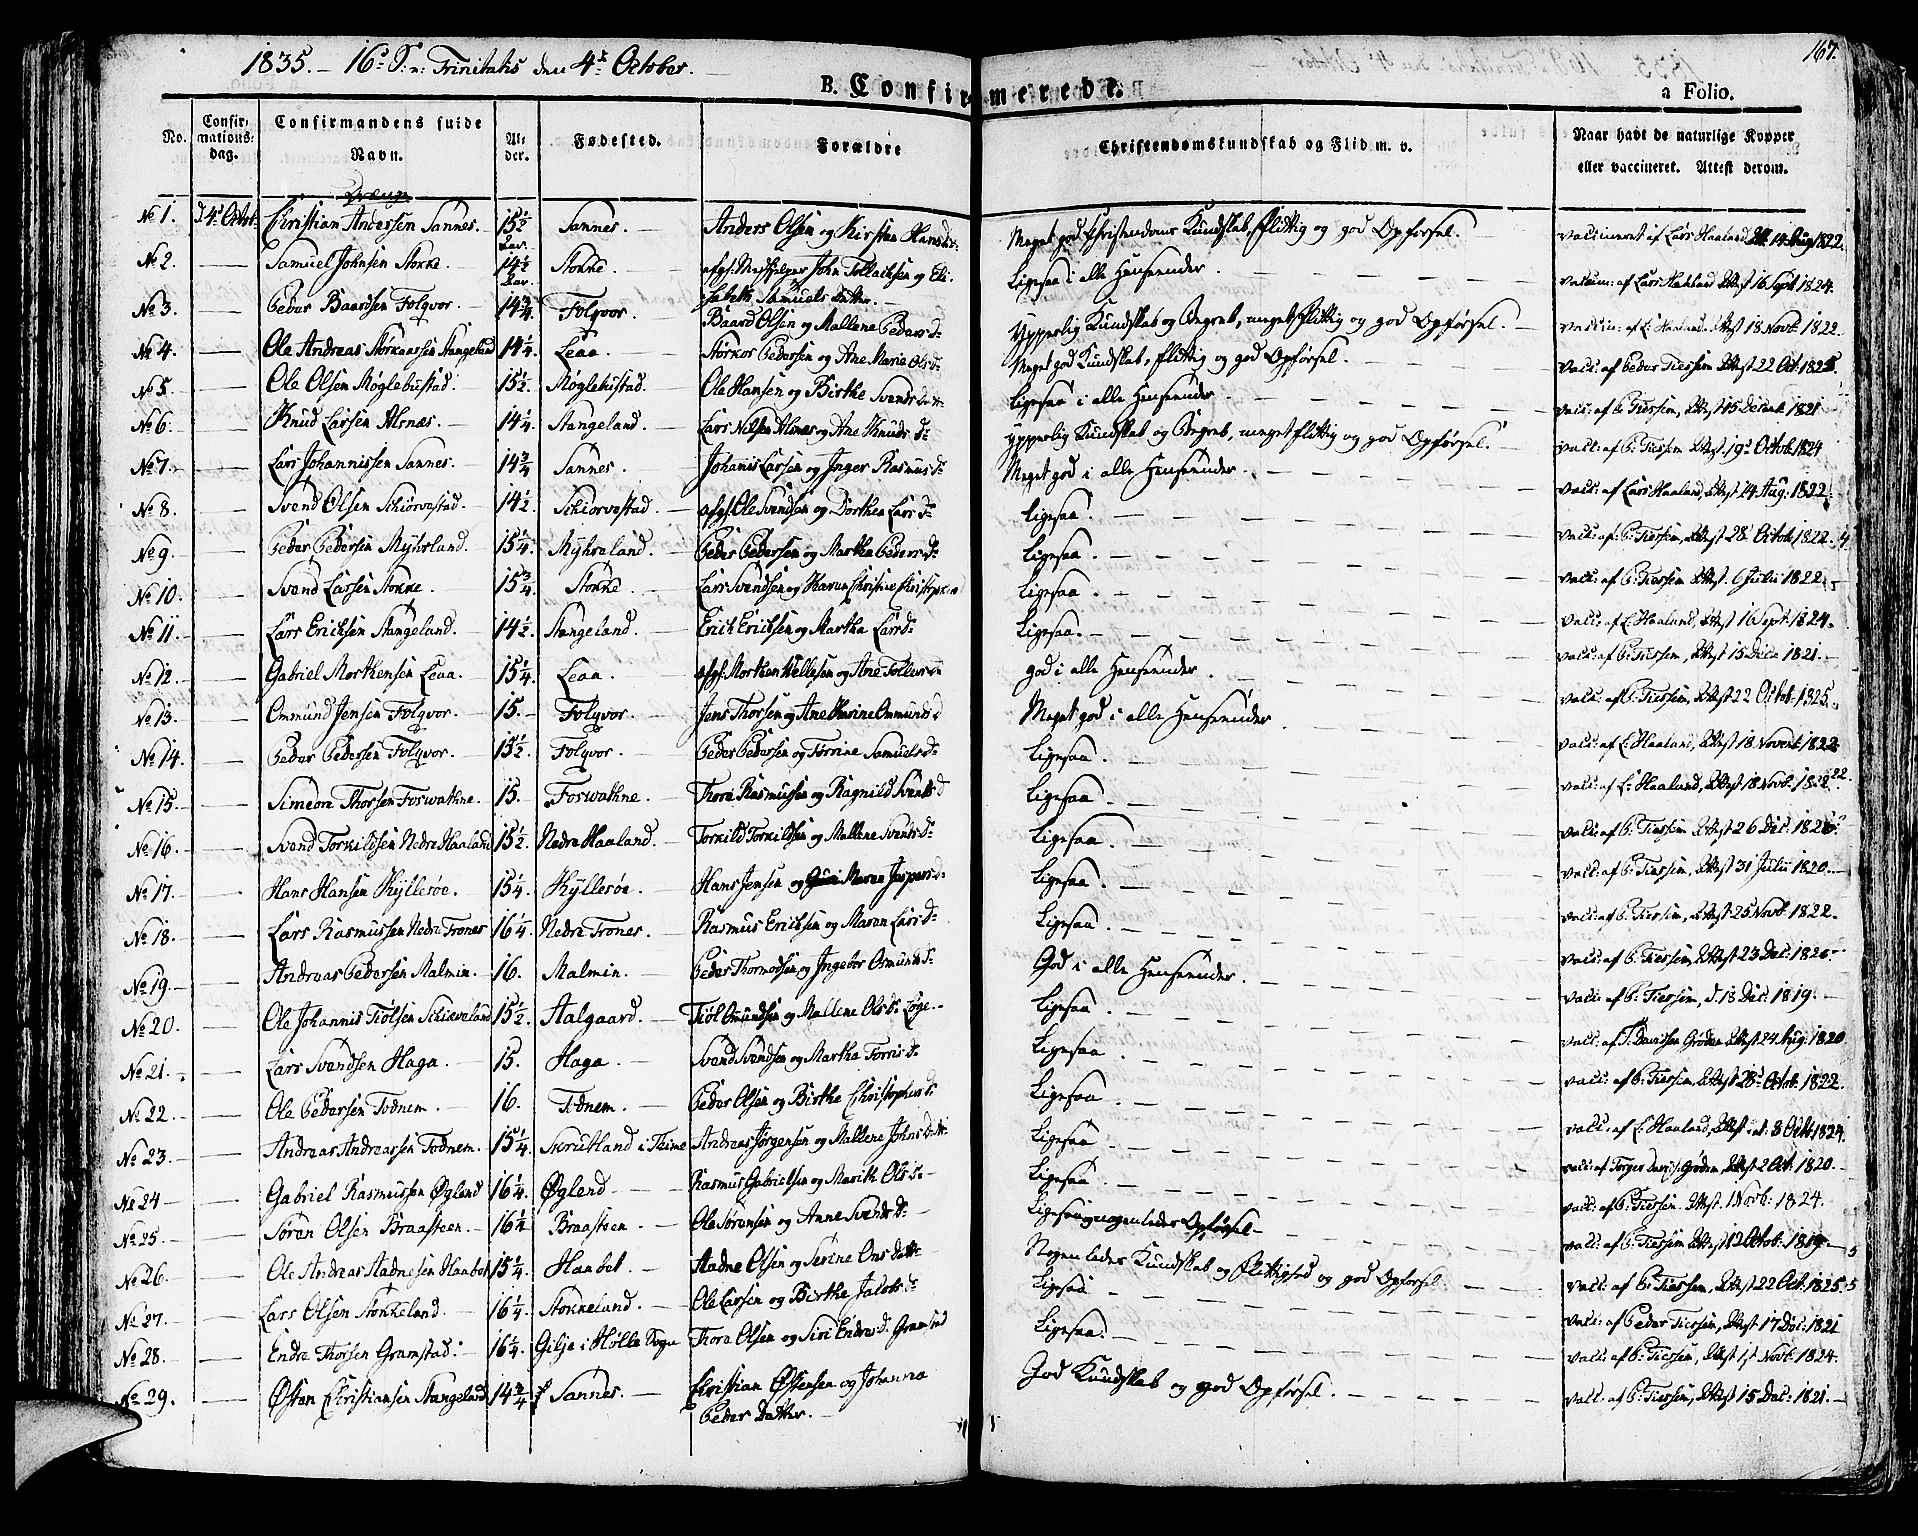 1835. — 16. S. n. Trinitatis den 4de October.
167.
B. Confirmerede.
a Folio.
No.
Confirmations-dag.
Confirmandens fulde Navn.
Alder.
Fødested.
Forældre
Christendomskundskab og Flid m. v.
Naar havt de naturlige Kopper eller vaccineret. Attest derom.
Drenge
No 1. D. 4de Octbr. Christian Andersen Sannes. 15½ Sannes. Anders Olsen og Kirsten Hansdr. Meget god Christendoms Kundskab, flittig og god Opførsel. vaccineret af Lars Haaland 14 Aug 1822.
No 2. — Samuel Johnsen Stokke. 14½ Stokke. afg: Medhjelper John Tollachsen og Elisabeth Samuels Datter. Ligesaa i alle Henseender. vaccin: af Lars Haaland Attest 16 Sept 1824.
No 3. — Peder Baardsen Folqvor. 14¾ Folqvor. Baard Olsen og Mallene Peders D. Ypperlig Kundskab og Begreb, meget flittig og god Opførsel. vaccin: af L: Haaland Attest 18 Novb: 1822
No 4. — Ole Andreas Størkorsen Stangeland 14¼ Leaa. Størkor Pedersen og Ane Maria Ols D. Meget god Kundskab, flittig og god Opførsel. vacc: af Peder Tiessem Attest 22 Oct: 1825.
No 5. — Ole Olsen Møglebustad. 15½ Møglebustad. Ole Hansen og Birthe Svends Datter Ligesaa i alle Henseender. vacc: af P: Tiessem, Attest 15 Decemb 1821
No 6. — Knud Larsen Alsnes. 14¼ Stangeland. Lars Nilsen Alsnes og Ane Knuds D. Ypperlig Kundskab og Begreb, meget flittig og god Opførsel. vacc: af P: Tiessem Attest 19 Octob 1824
No 7. — Lars Johannissen Sannes. 14¾ Sannes. Johanis Larsen og Inger Rasmus D. Meget god i alle Henseender. vacc: af Lars Haaland, Attest 14 Aug: 1822.
No 8. — Svend Olsen Schiørvestad. 14½ Schiørvestad. afg: Ole Svendsen og Dorthea Lars D. Ligesaa. vacc: af P: Tiessem, Attest 28 Octob 1822.
No 9. — Peder Pedersen Myhrland. 15¼ Myhraland. Peder Pedersen og Martha Peders D. Ligesaa. vacc: af P: Tiessem Attest 6 Julii 1822.
No 10. — Svend Larsen Stokke. 15¾ Stokke. Lars Svendsen og Karen Christine Ligesaa. vacc: af L: Haaland, Attest 16 Sept: 1824.
No 11. — Lars Eriksen Stangeland. 14½ Stangeland. Erik Eriksen og Martha Lars D. Ligesaa. vacc: af P: Tiessem, Attest 15 Dec 1821.
No 12. — Gabriel Morthensen Leaa. 15¼ Leaa. afg: Morthen og Ane god i alle Henseender. vacc: af P: Tiessem, Attest 22 Octob. 1825.
No 13. — Ommund Jensen Folqvor. 15. Folqvor. Jens Thorsen og Ane Karine Ommunds D Meget god i alle Henseender. vacc: af L: Haaland, Attest 18 Novemb 1822
No 14. — Peder Pedersen Folqvor. 15½ Folqvor Peder Pedersen og Torrine Samuels D. Ligesaa. vacc: af L: Haaland, Attest 18 Novb. 1822.
No 15. — Simeon Thorsen Forwathne. 15. Forwathne. Thore Rasmussen og Ragnild Svends D Ligesaa. vacc: af P: Tiessem Attest 26 Dec:
No 16. — Svend Torkildsen Nedre Haaland 15½ Nedre Haaland. Torkild Torkildsen og Mallene Svends D. Ligesaa. vacc: af P: Tiessem, Attest 31 Julii 1820.
No 17. — Hans Hansen Kyllesøe. 15¼ Kyllesøe. Hans Jensen og Maren Jespers D. Ligesaa. vacc: af P: Tiessem, Attest 25 Novb: 1822.
No 18. — Lars Rasmussen Nedre Trones 16¼ Nedre Trones. Rasmus Eriksen og Maren Lars D. Ligesaa. vacc: af P: Tiessem, Attest 23 Dec: 1820
No 19. — Andreas Pedersen Malmin. 16. Malmin. Peder Thormodsen og Ingebor Osmunds D. God i alle Henseender. vacc: af P: Tiessem, d. 18 Dec: 1819.
No 20. — Ole Johannis Tiølsen Schiæveland 15½ Aalgaard. Tiøl Omundsen og Mallene Ols D. Ligesaa. vacc: af T: Davidsen Grøden Attest 24 Aug: 1820
No 21. — Lars Svendsen Haga. 15. Haga. Svend Svendsen og Martha Torris D. Ligesaa. vacc: af P: Tiessem, Attest 28 Octob: 1822.
No 22. — Ole Pedersen Todnem. 16. Todnem. Peder Olsen og Birthe Christophers D. Ligesaa. vacc: af L: Haaland, Attest 8 Octb 1824.
No 23. — Andreas Andreassen Todnem. 15¼ i Thime Andreas Jørgensen og Mallene Johns Datter Ligesaa vacc: af Torger Davids: Grøden, Attest 2 Oct: 1820.
No 24 — Gabriel Rasmussen Øglend 16¼ Øglend Rasmus Gabrielsen og Marith Ols D. Ligesaa vacc: af P: Tiessem. Attest. 1 Novb: 1824.
No 25. — Søren Olsen Braasteen. 16¼ Braasteen. Ole Sørensen og Anne Svends D. Ligesaa nogenledes Opførsel vacc: af P: Tiessem Attest 12 Octob. 1819.
No 26. — Ole Andreas Aadnesen Haabet 15¼ Haabet. Aadne Olsen og Serine Ons Datter Nogenledes Kundskab og Flittighed og god Opførsel. vacc: af P: Tiessem, Attest 22 Oct: 1825.
No 27. — Lars Olsen Stokkeland. 16¼ Stokkeland. Ole Larsen og Birthe Jacobs D. Ligesaa vacc: af Peder Tiessem, Attest 17 Dec: 1821
No 28. — Endre Thorsen Gramstad. 16¼ Gilje i Hølle Sogn Thore Olsen og Siri Endres D. Gramstad Ligesaa. vacc: af P: Tiessem, Attest 1st Novb: 1824.
No 29. — Østen Christiansen Stangeland 14¾ Sannes. Christian Østensen og Johanna Peders Datter. God Kundskab og god Opførsel. vacc: af P: Tiessem, Attest 15 Dec: 1821.